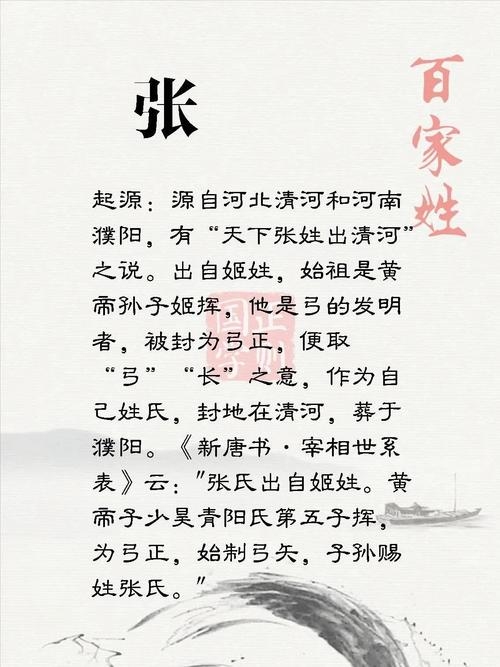 张
百家姓
起源：源自河北清河和河南
濮阳，有“天下张姓出清河”
之说。出自姬姓，始祖是黄
帝孙子姬挥，他是弓的发明
者，被封为弓正，便取
“弓”“长”之意，作为自
己姓氏，封地在清河，葬于
濮阳。《新唐书·宰相世系
表》云："张氏出自姬姓。黄
帝子少昊青阳氏第五子挥，
为弓正，始制弓矢，子孙赐
姓张氏。"
正则
国学